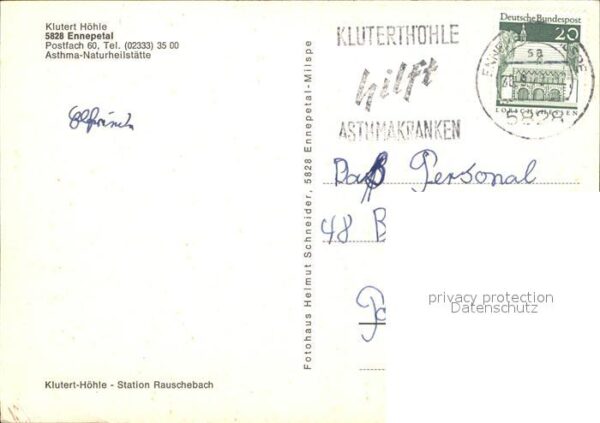 Klutert Höhle
5828 Ennepetal
Postfach 60, Tel. (02333) 35 00
Asthma-Naturheilstätte
KLUTERTHÖHLE
hilft
ASTHMAKRANKEN
Deutsche Bundespost
20
LORSCH/HESSEN
5828
Personal
48 B
privacy protection
Datenschutz
Fotohaus Helmut Schneider, 5828 Ennepetal-Milspe
Klutert-Höhle - Station Rauschebach